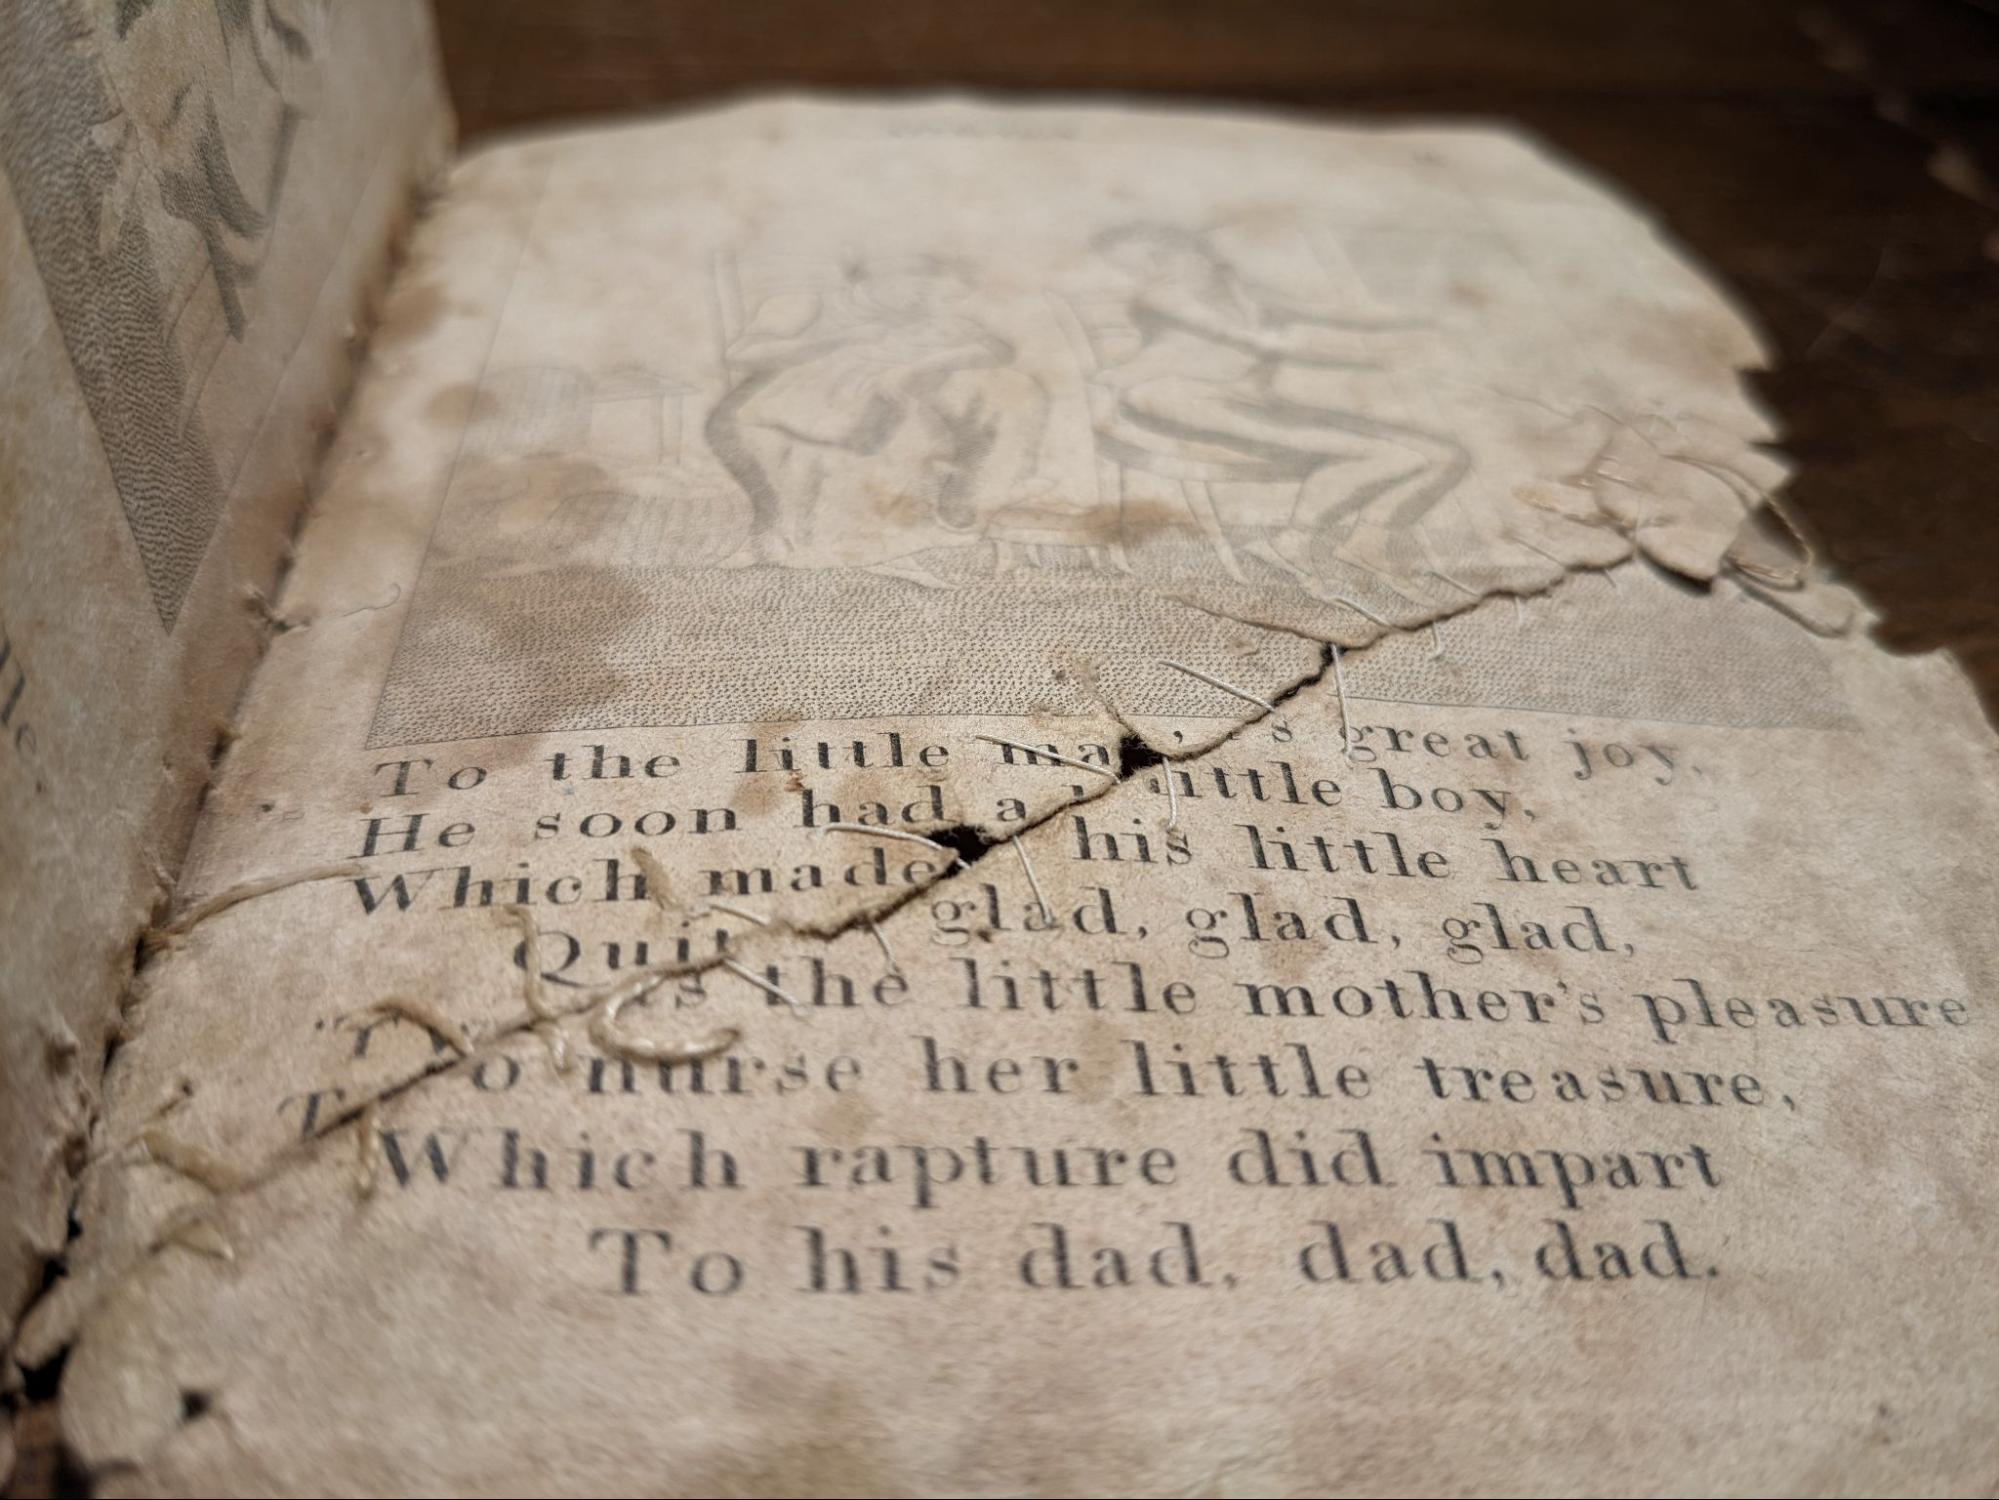 le.
To the little ma 's great joy,
He soon had a little boy,
Which made his little heart
Quit glad, glad, glad,
'T s the little mother's pleasure
To nurse her little treasure,
Which rapture did impart
To his dad, dad, dad.